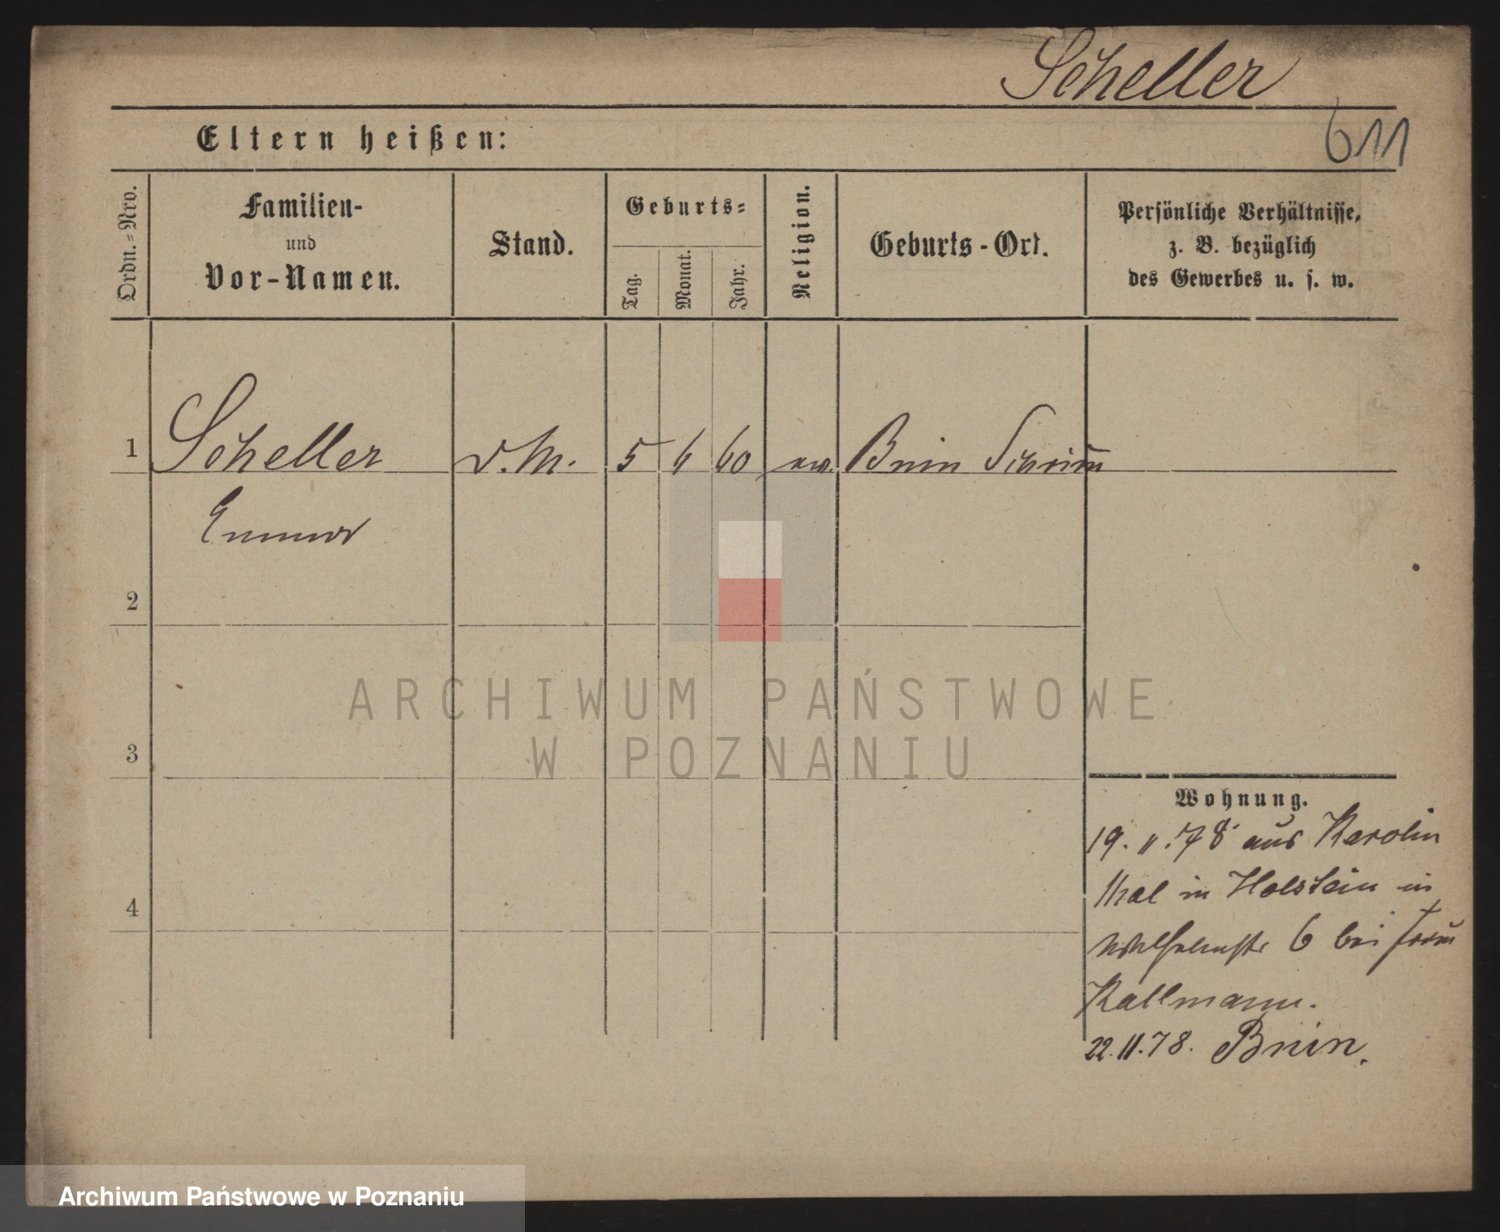 Scheller
611
Eltern heißen:
Ordn.=Nro.
Familien-
und
Vor-Namen.
Stand.
Geburts=
Tag.
Monat.
Jahr.
Religion.
Geburts-Ort.
Persönliche Verhältnisse,
z. B. bezüglich
des Gewerbes u. s. w.
1 Scheller d. M. 5 6 60 ev. Bnin Schrim
Emma
2
3
4
Wohnung.
19. 11. 78 aus Karolin
thal in Holstein in
6 bei Frau
Kallmann.
22. 11. 78. Bnin.
ARCHIWUM PAŃSTWOWE
W POZNANIU
Archiwum Państwowe w Poznaniu